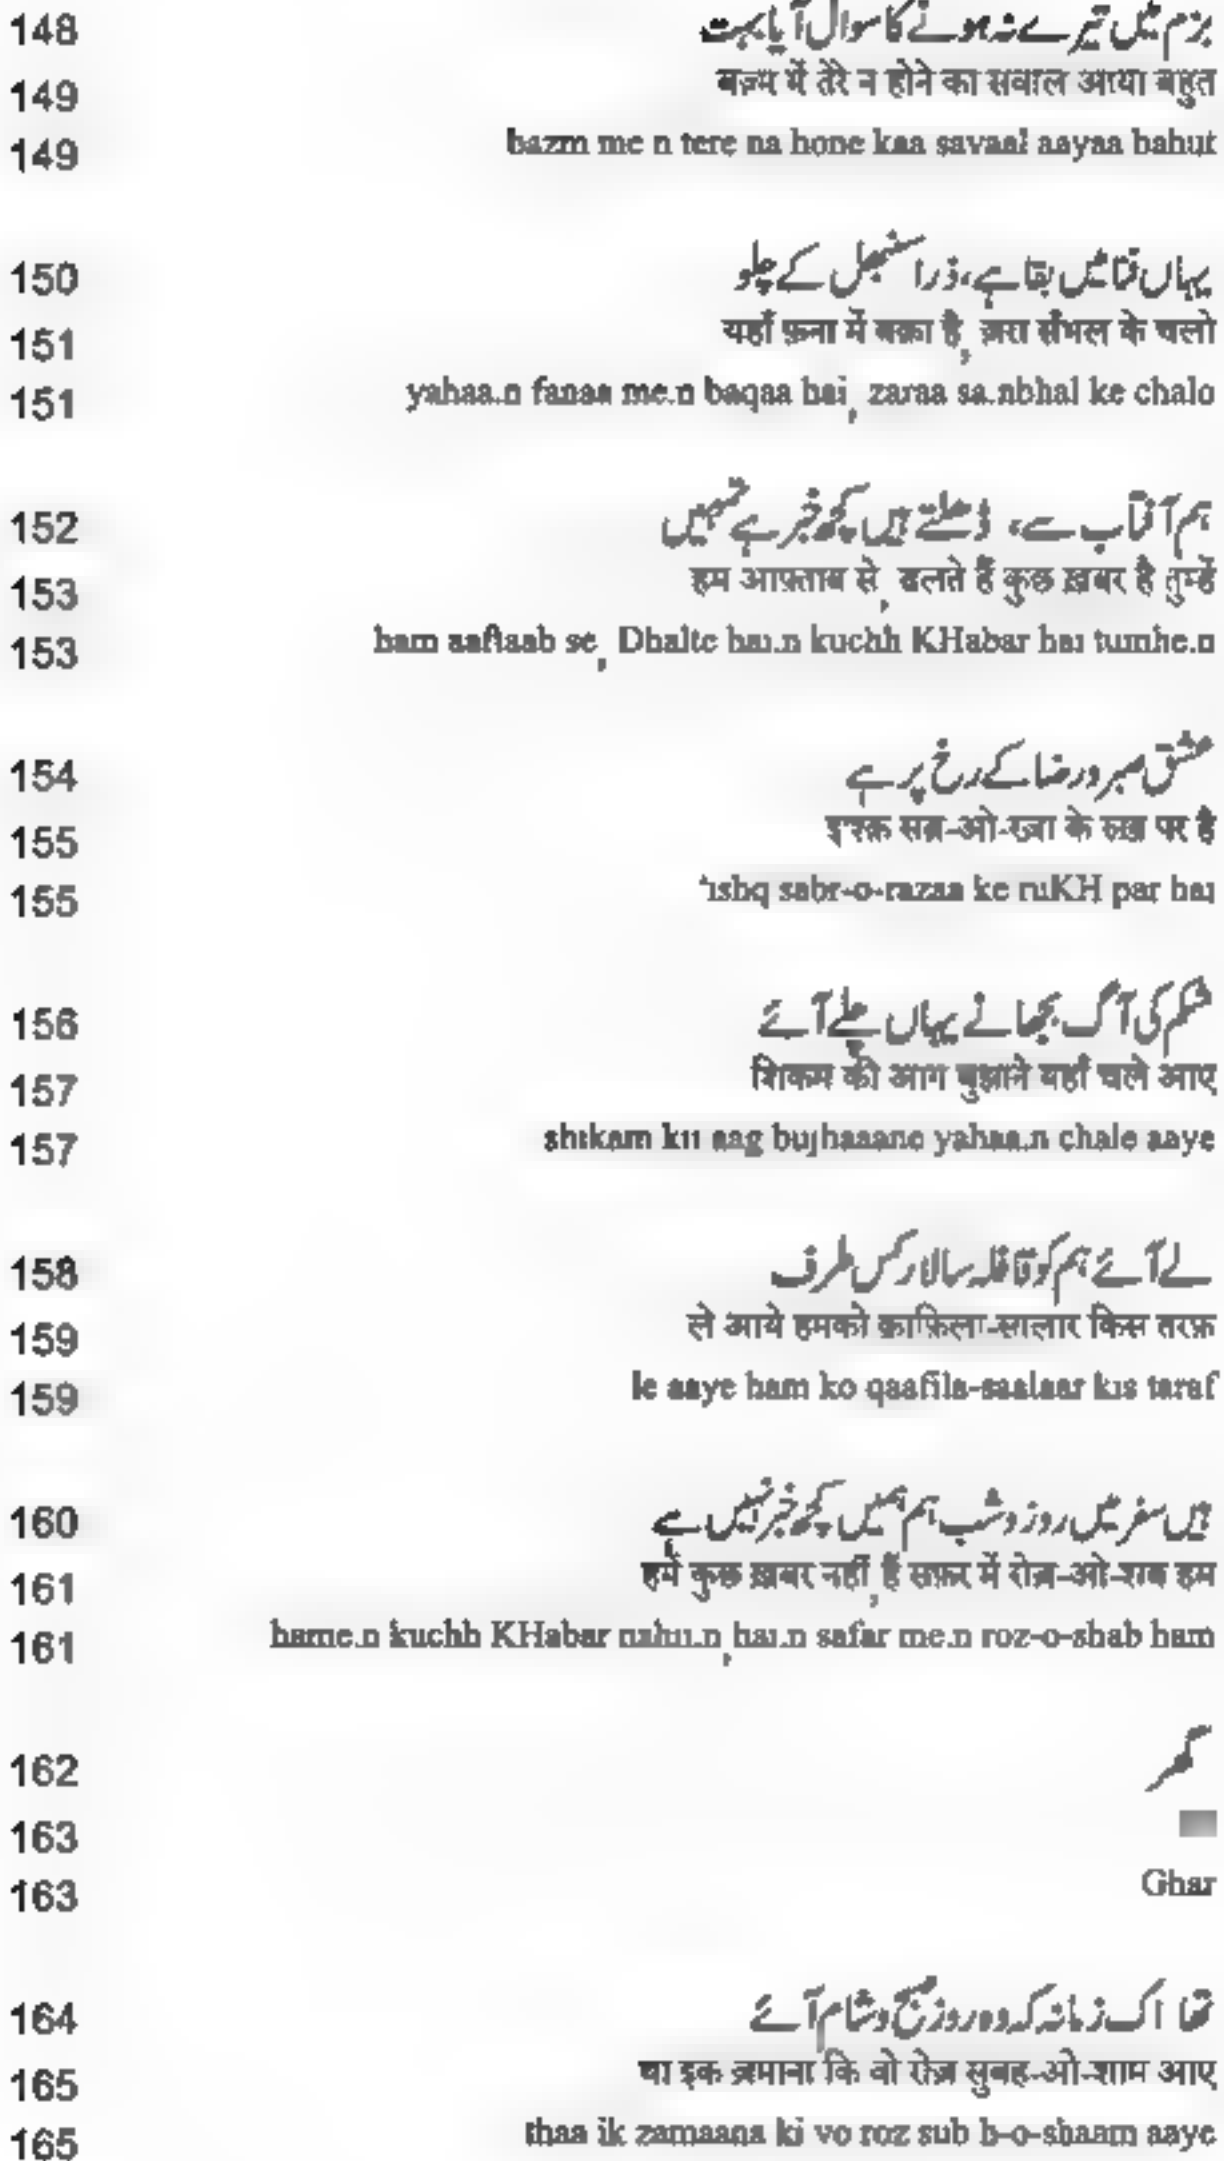 148 بزم میں تیرے نہ ہونے کا سوال آیا بہت
149 बज़्म में तेरे न होने का सवाल आया बहुत
149 bazm me n tere na hone kaa savaal aayaa bahut
150 یہاں فنا میں بقا ہے، ذرا سنبھل کے چلو
151 यहाँ फ़ना में बक़ा है, ज़रा सँभल के चलो
151 yahaa.n fanaa me.n baqaa hai, zaraa sa.nbhal ke chalo
152 ہم آفتاب سے، ڈھلتے ہیں کچھ خبر ہے تمہیں
153 हम आफ़्ताब से, ढलते हैं कुछ ख़बर है तुम्हें
153 ham aaftaab se, Dhalte hai.n kuchh KHabar hai tumhe.n
154 عشق صبر و رضا کے رخ پر ہے
155 इश्क़ सब्र-ओ-रज़ा के रुख़ पर है
155 'ishq sabr-o-razaa ke ruKH par hai
156 شکم کی آگ بجھانے یہاں چلے آئے
157 शिकम की आग बुझाने यहाँ चले आए
157 shikam kii aag bujhaaane yahaa.n chale aaye
158 لے آئے ہم کو قافلہ سالار کس طرف
159 ले आये हमको क़ाफ़िला-सालार किस तरफ़
159 le aaye ham ko qaafila-saalaar kis taraf
160 ہیں سفر میں روز و شب ہم ہمیں کچھ خبر نہیں ہے
161 हमें कुछ ख़बर नहीं, हैं सफ़र में रोज़-ओ-शब हम
161 hame.n kuchh KHabar nahii.n, hai.n safar me.n roz-o-shab ham
162 گھر
163
163 Ghar
164 تھا اک زمانہ کہ وہ روز صبح و شام آئے
165 था इक ज़माना कि वो रोज़ सुबह-ओ-शाम आए
165 thaa ik zamaana ki vo roz sub h-o-shaam aaye